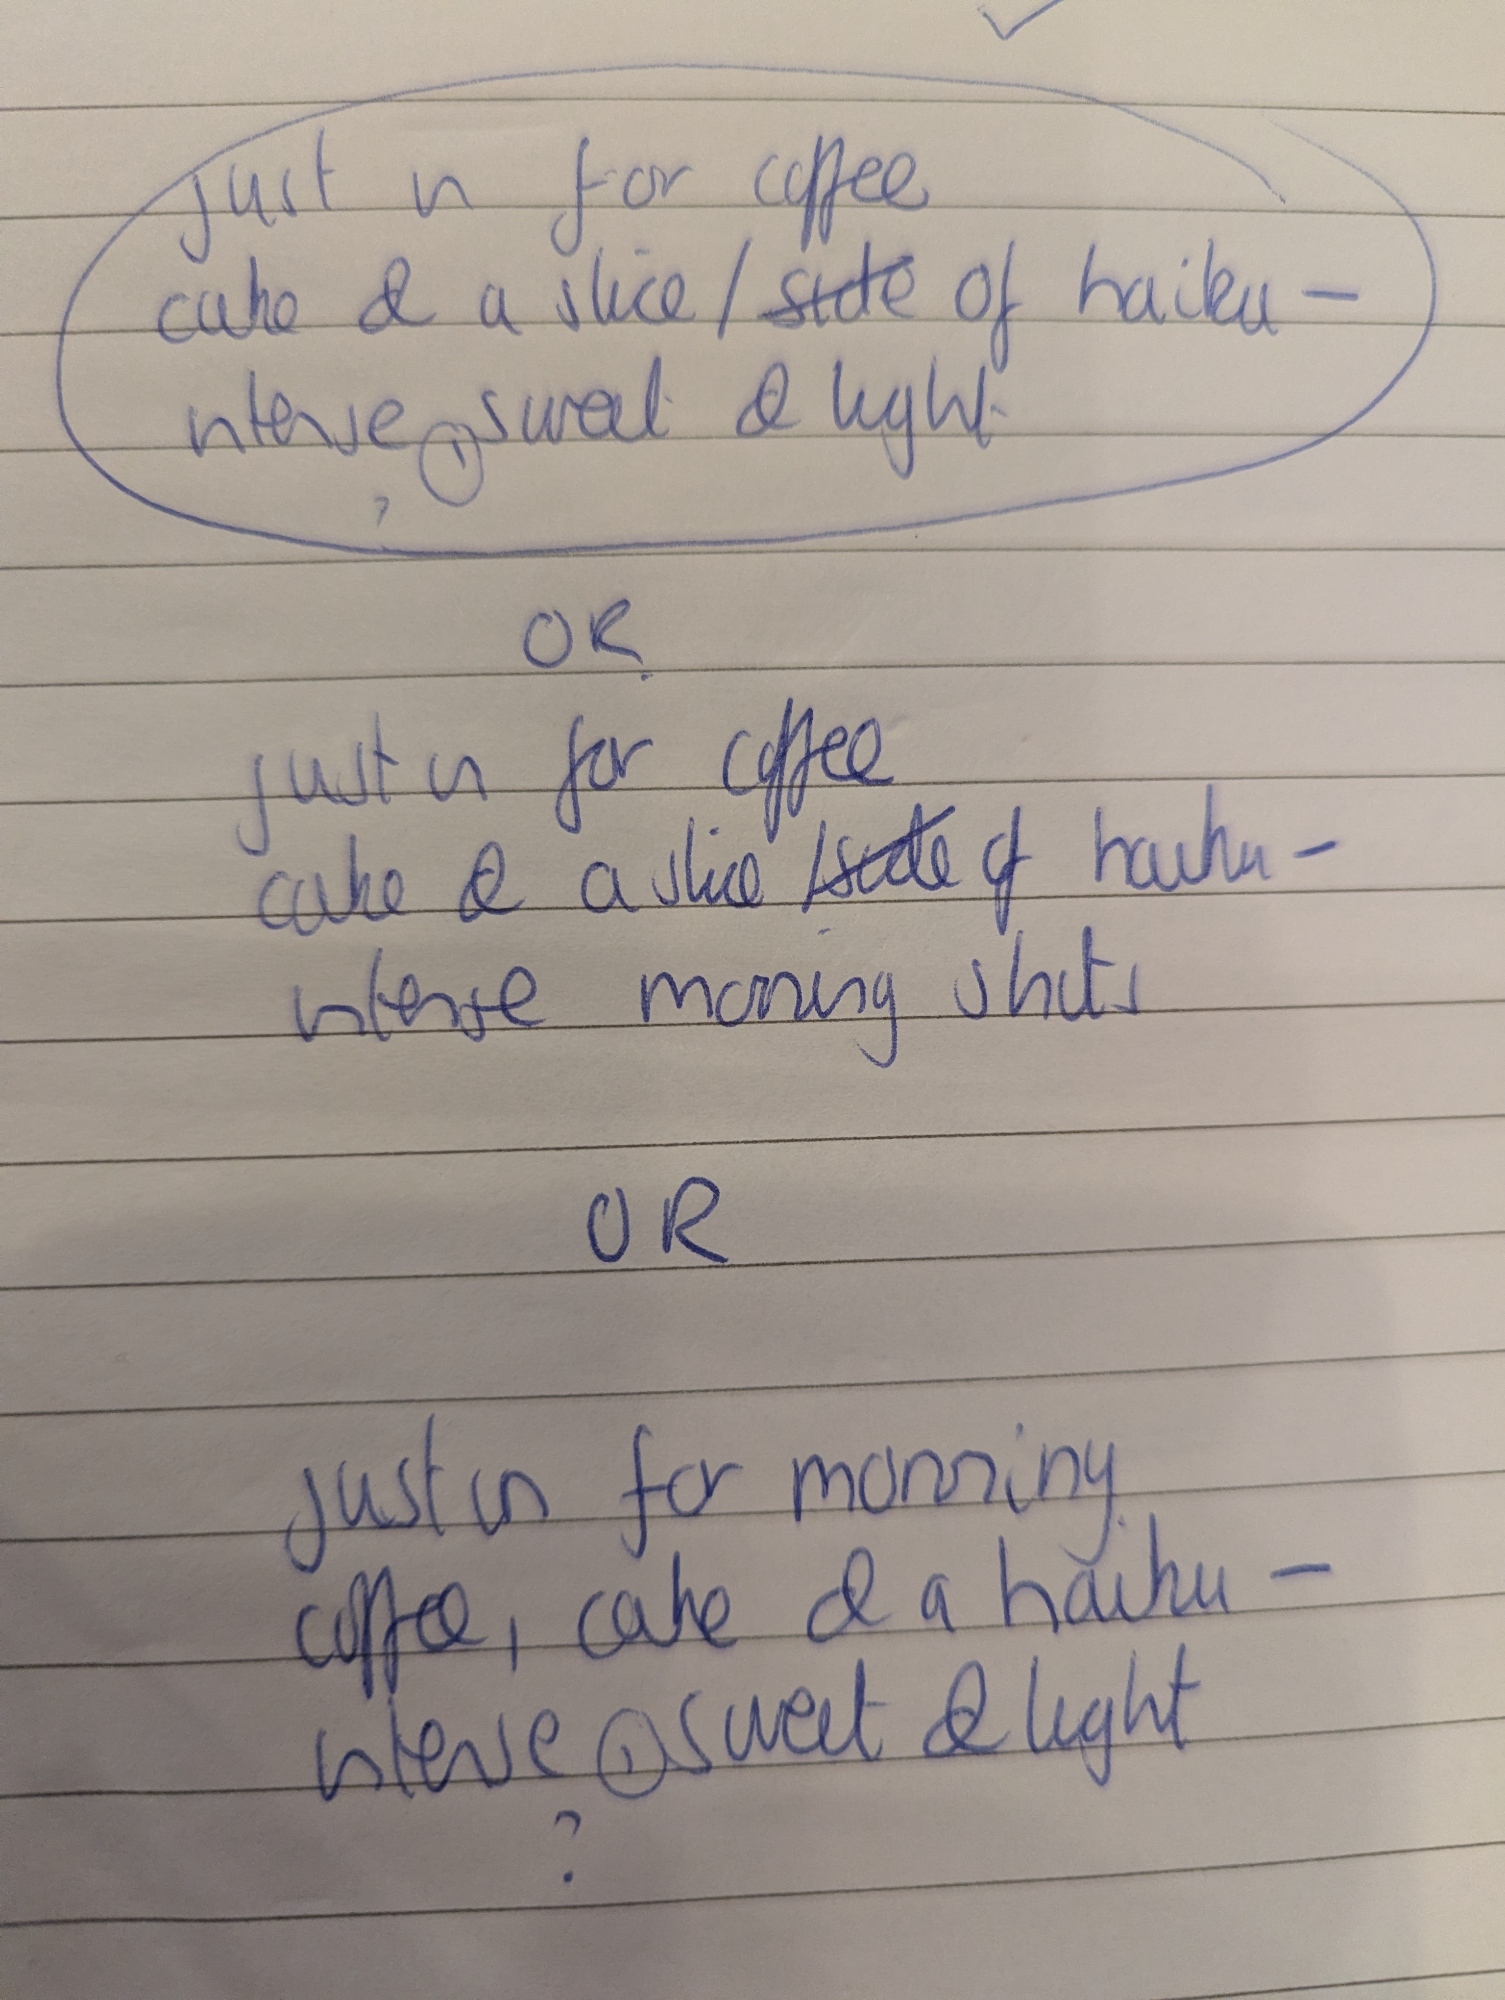 just in for coffee
cake & a slice / side of haiku –
intense, sweet & light
?
OR
just in for coffee
cake & a slice / side of haiku –
intense morning shots
OR
just in for morning
coffee, cake & a haiku –
intense, sweet & light
?